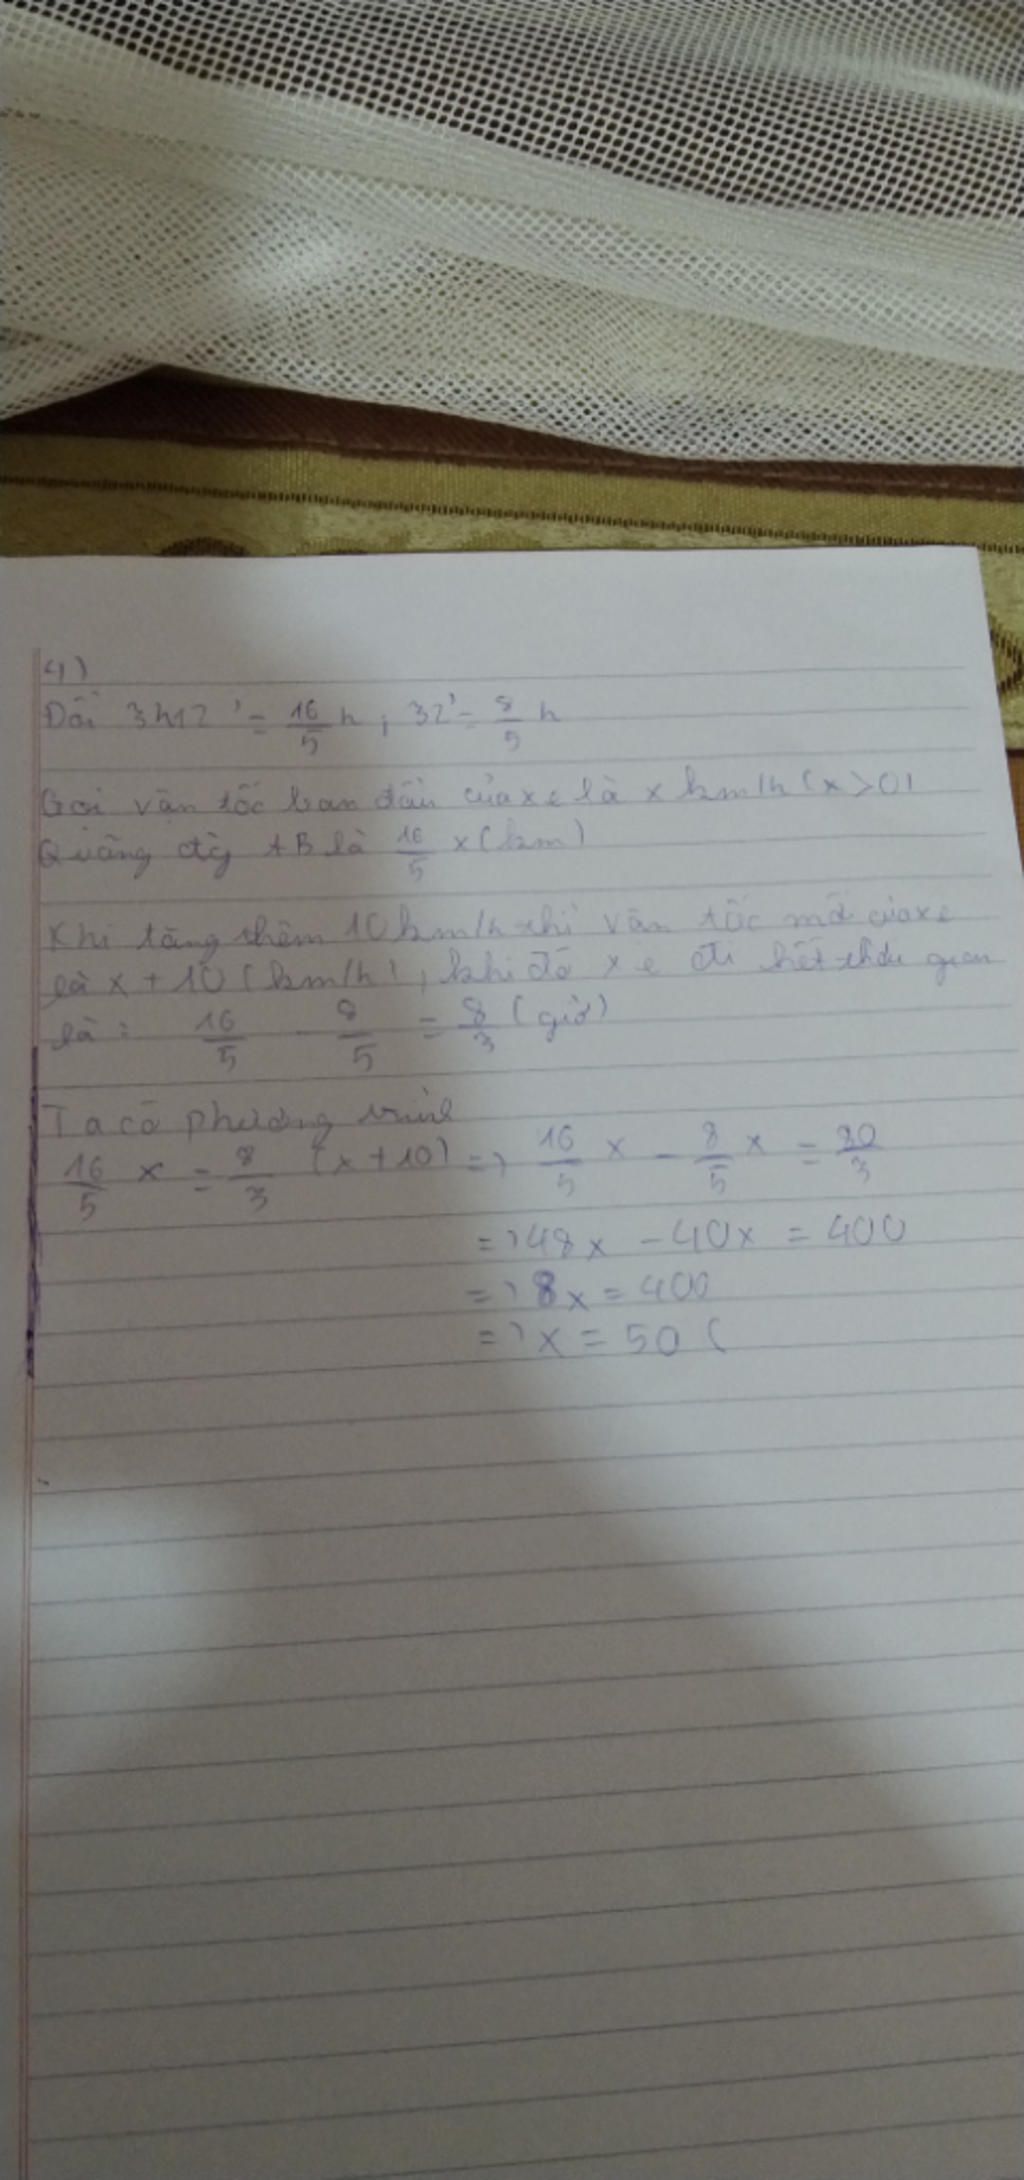 4)
Đổi 3h12' = 16/5 h ; 32' = 8/5 h
Gọi vận tốc ban đầu của xe là x km/h (x > 0)
Quãng đg AB là 16/5 x (km)
Khi tăng thêm 10 km/h thì vận tốc mới của xe
là x + 10 (km/h), khi đó xe đi hết thời gian
là : 16/5 - 8/5 = 8/3 (giờ)
Ta có phương trình
16/5 x = 8/3 (x + 10) => 16/5 x - 8/5 x = 80/3
=> 48x - 40x = 400
=> 8x = 400
=> x = 50 (